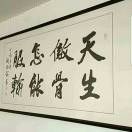 天生
傲骨
怎能
服輸